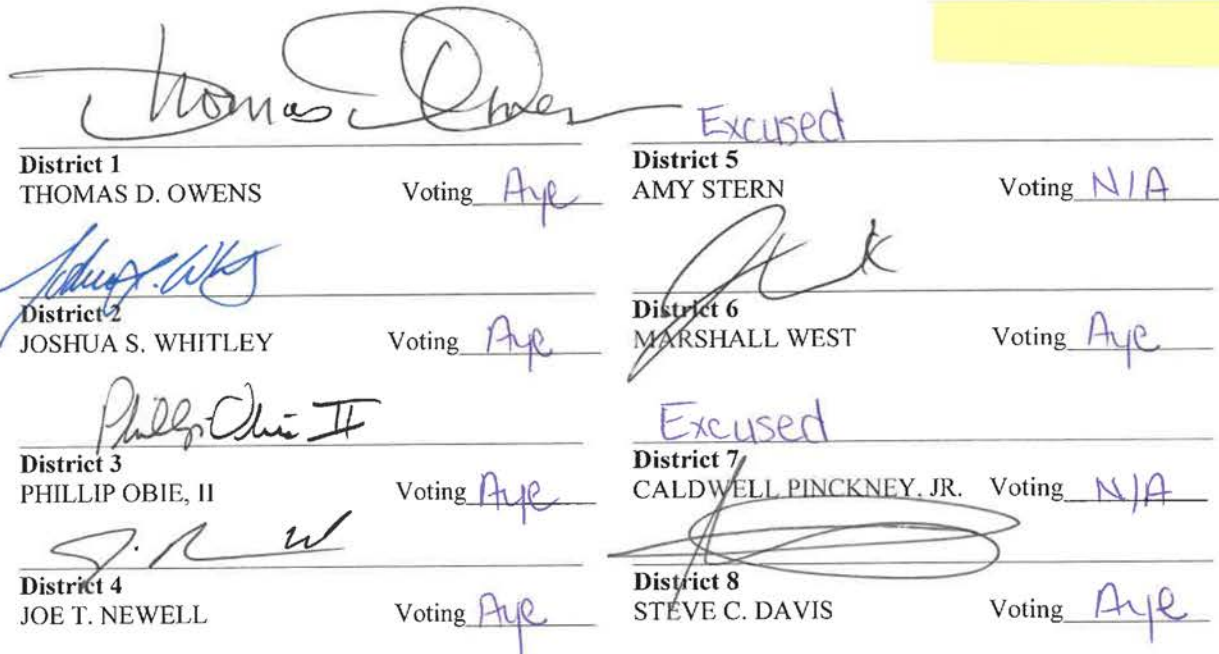 Thomas D Owens
District 1
THOMAS D. OWENS Voting Aye
Joshua S. Whitley
District 2
JOSHUA S. WHITLEY Voting Aye
Phillip Obie II
District 3
PHILLIP OBIE, II Voting Aye
District 4
JOE T. NEWELL Voting Aye
Excused
District 5
AMY STERN Voting N/A
District 6
MARSHALL WEST Voting Aye
Excused
District 7
CALDWELL PINCKNEY, JR. Voting N/A
District 8
STEVE C. DAVIS Voting Aye